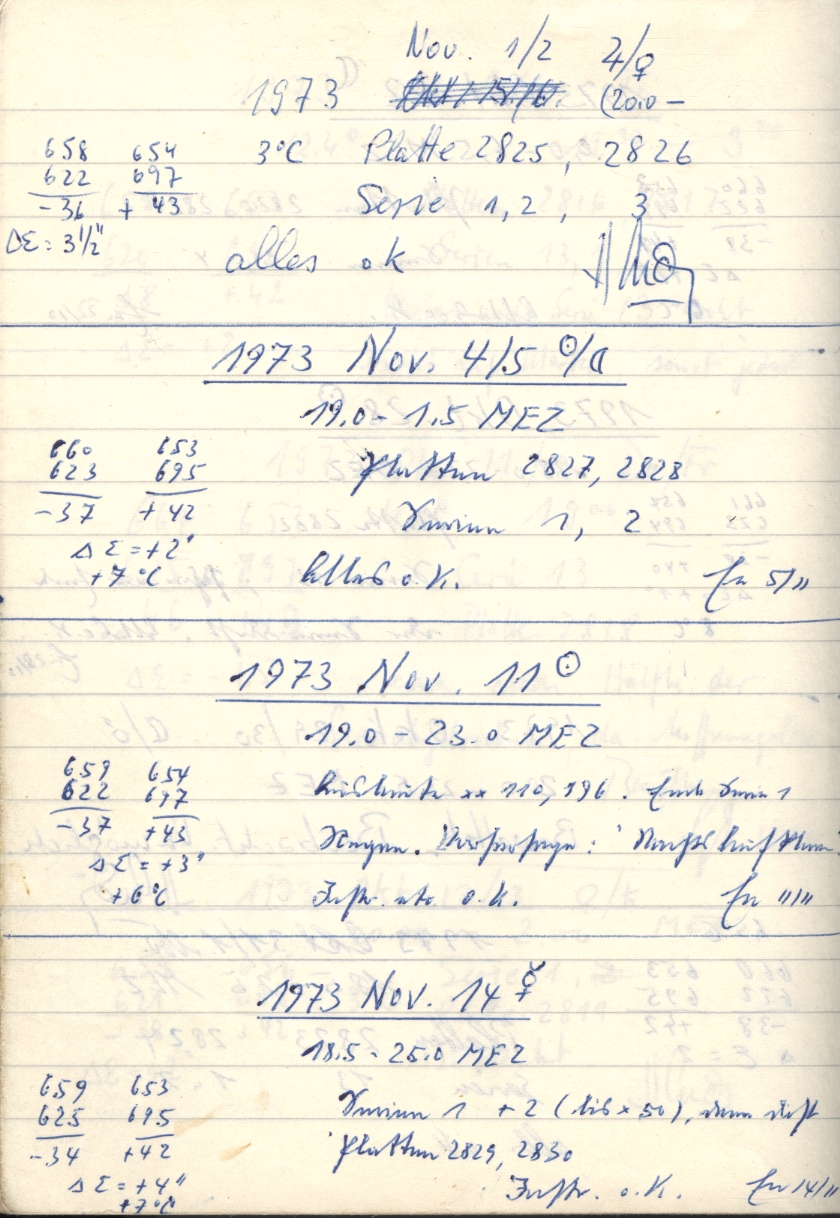 Nov. 1/2 ♃/♀
1973 (20.0 —
658 654 3°C Platte 2825, 2826
622 697 Serie 1, 2, 3
-36 + 43
ΔΣ = 3 1/2"
alles ok
1973 Nov. 4/5 ☉/☾
19.0 - 1.5 MEZ
660 653 Platten 2827, 2828
623 695
-37 +42 Serien 1, 2
ΔΣ = +2"
+7°C Alles o.K. 5/11
1973 Nov. 11 ☉
19.0 - 23.0 MEZ
659 654 110, 196. Ende Serie 1
622 697
-37 +43 Regen. Vorhersage: Nachts
ΔΣ = +3"
+6°C Instr. etc. o.K. 11/11
1973 Nov. 14 ☿
18.5 - 25.0 MEZ
659 653
625 695 Serien 1 + 2 (bis × 50), dann
-34 +42 Platten 2829, 2830
ΔΣ = +4" Instr. o.K. 14/11
+7°C